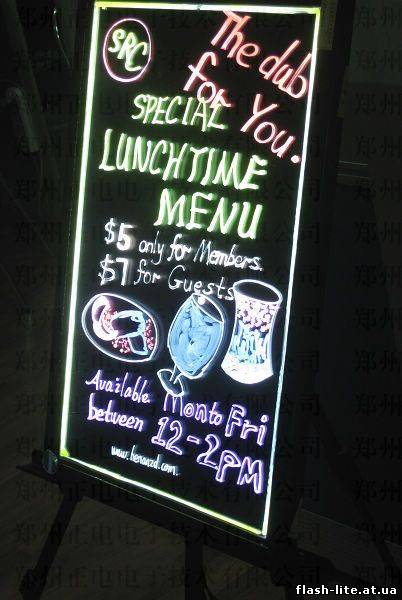 SRC
The club
for You.
SPECIAL
LUNCHTIME
MENU
$5 only for Members.
$7 for Guests
Available Mon to Fri
between 12-2PM
www.henanzd.com.
flash-lite.at.ua